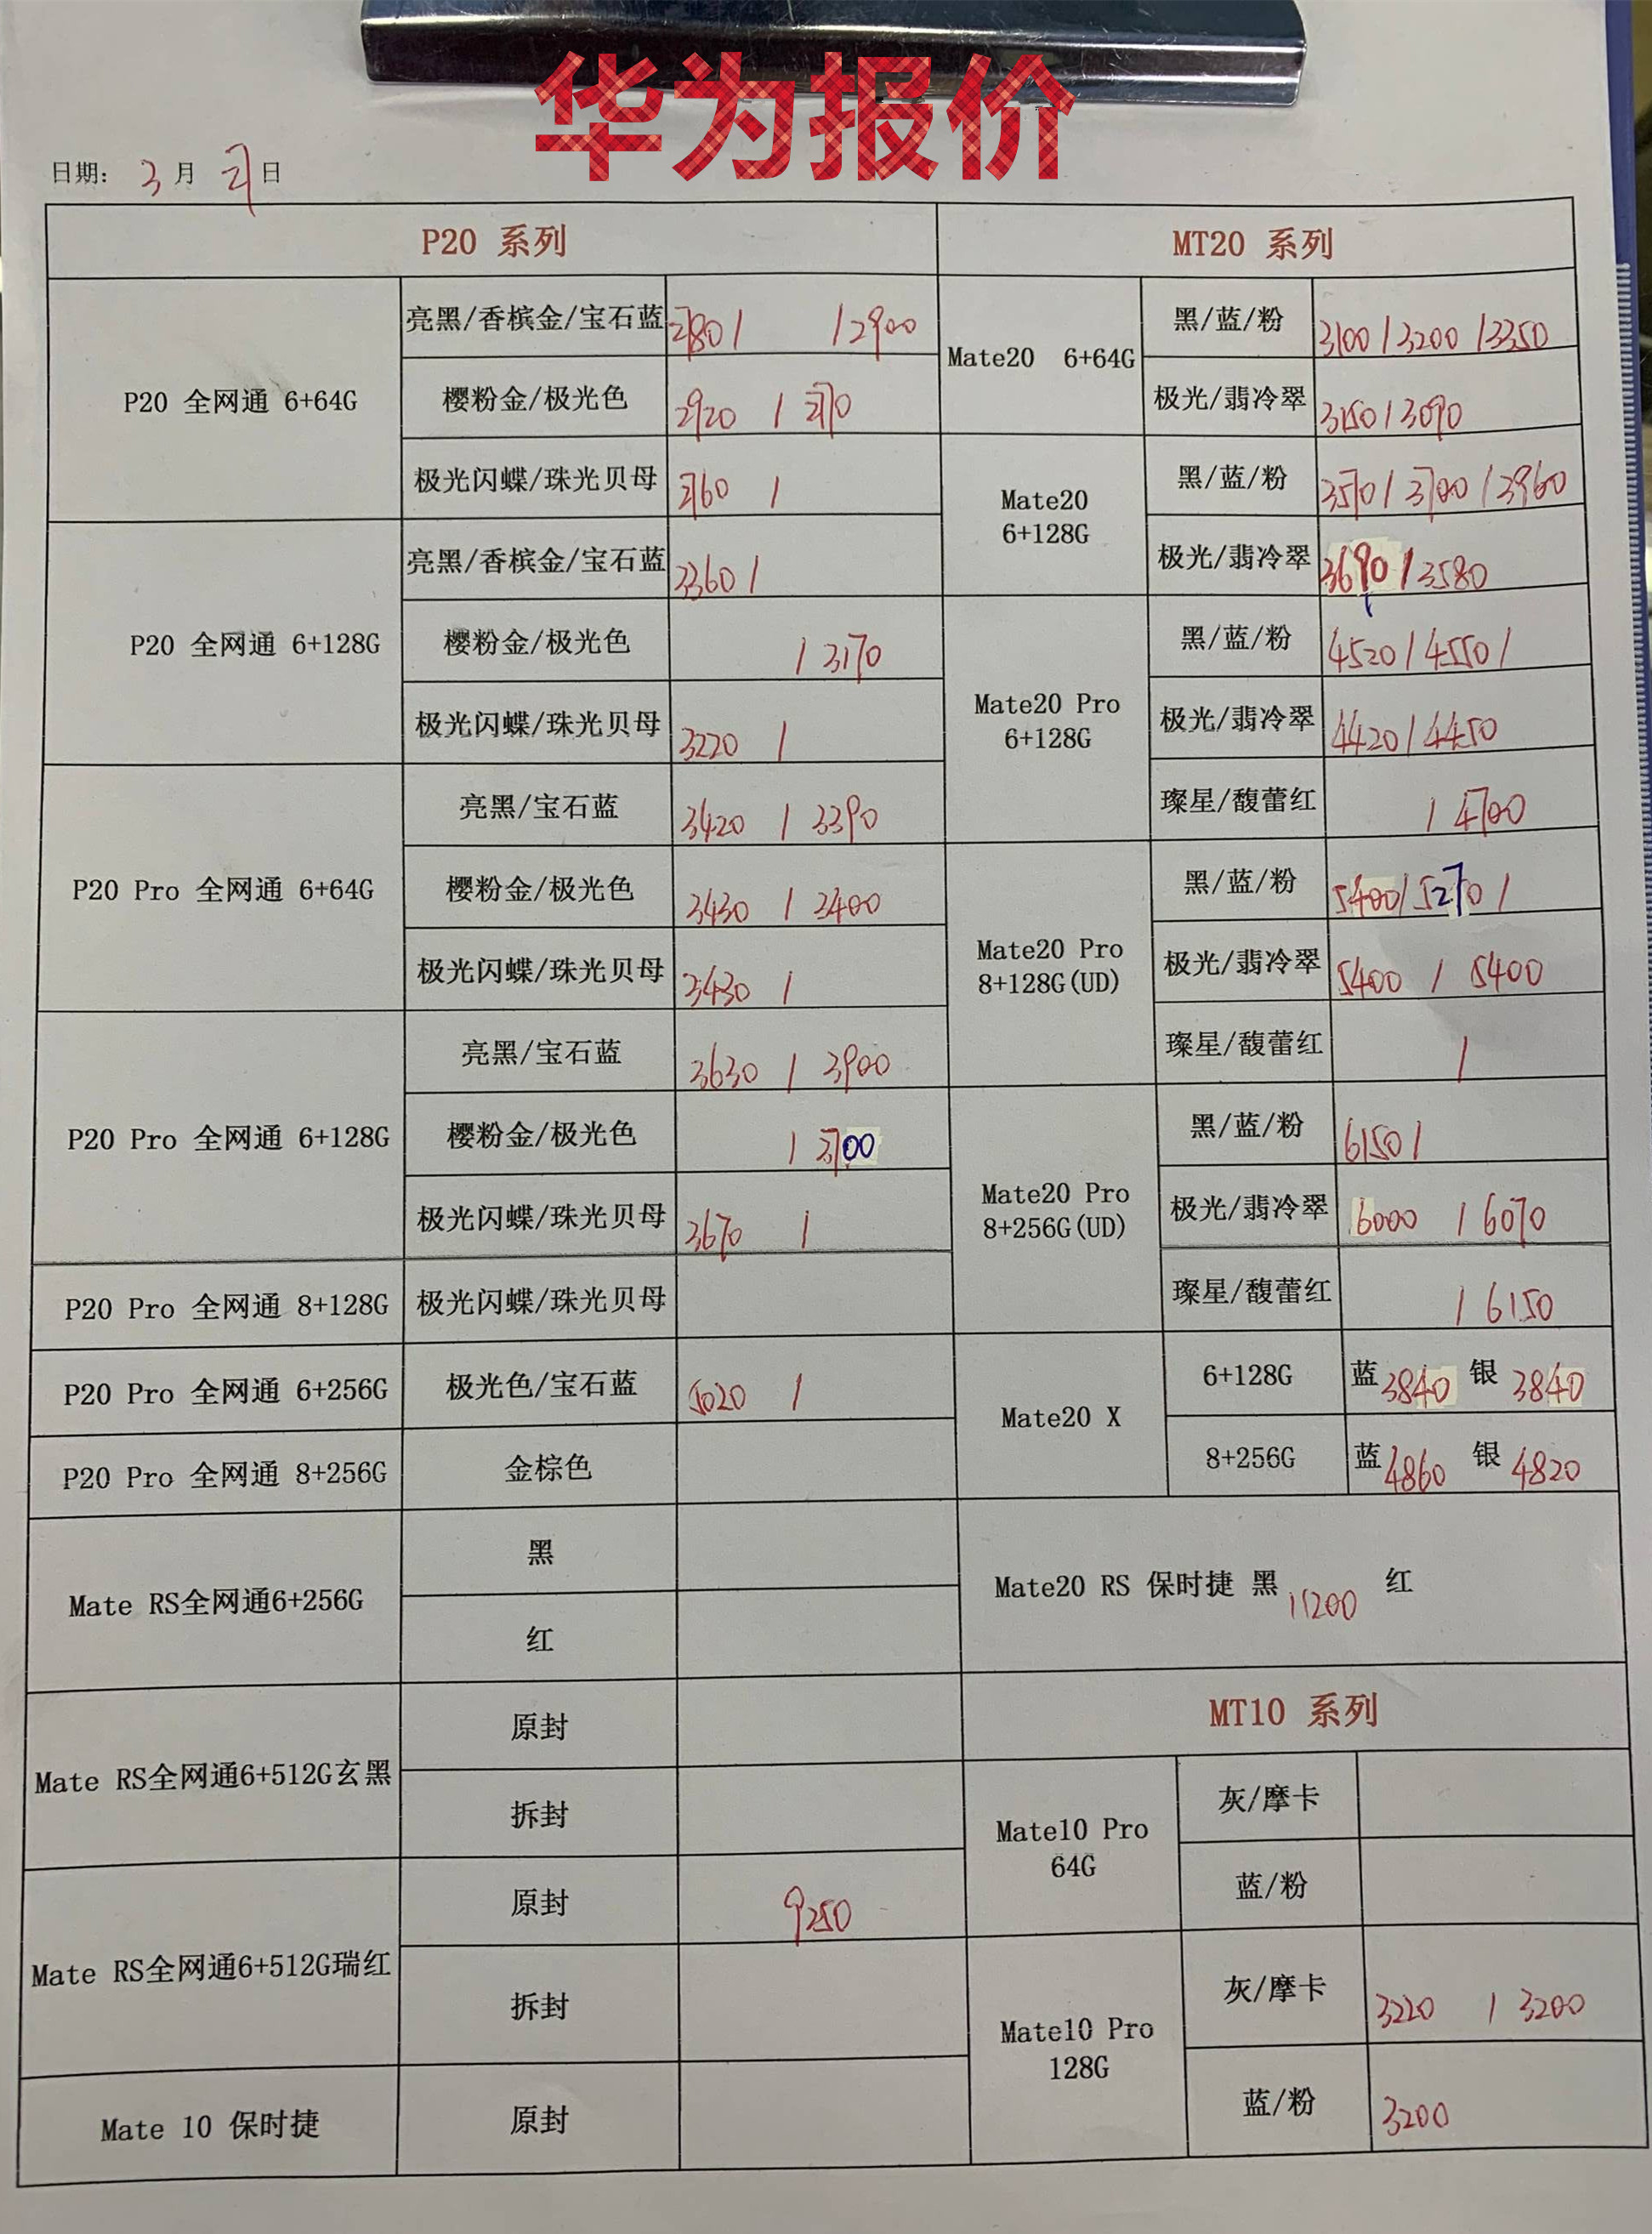 华为报价
日期: 3 月 27 日
P20 系列
P20 全网通 6+64G
亮黑/香槟金/宝石蓝 2780 / / 2900
樱粉金/极光色 2920 /
极光闪蝶/珠光贝母 2760 /
P20 全网通 6+128G
亮黑/香槟金/宝石蓝 3360 /
樱粉金/极光色 / 3170
极光闪蝶/珠光贝母 3220 /
P20 Pro 全网通 6+64G
亮黑/宝石蓝 3420 / 3390
樱粉金/极光色 3430 / 3400
极光闪蝶/珠光贝母 3430 /
P20 Pro 全网通 6+128G
亮黑/宝石蓝 3630 / 3900
樱粉金/极光色 / 3700
极光闪蝶/珠光贝母 3670 /
P20 Pro 全网通 8+128G 极光闪蝶/珠光贝母
P20 Pro 全网通 6+256G 极光色/宝石蓝 5020 /
P20 Pro 全网通 8+256G 金棕色
Mate RS全网通6+256G
黑
红
Mate RS全网通6+512G玄黑
原封
拆封
Mate RS全网通6+512G瑞红
原封 9250
拆封
Mate 10 保时捷 原封
MT20 系列
Mate20 6+64G
黑/蓝/粉 3100 / 3200 / 3350
极光/翡冷翠 3150 / 3090
Mate20
6+128G
黑/蓝/粉 3570 / 3700 / 3960
极光/翡冷翠 3690 / 3580
Mate20 Pro
6+128G
黑/蓝/粉 4520 / 4550 /
极光/翡冷翠 4420 / 4450
璨星/馥蕾红 / 4700
Mate20 Pro
8+128G(UD)
黑/蓝/粉 5400 / 5270 /
极光/翡冷翠 5400 / 5400
璨星/馥蕾红 /
Mate20 Pro
8+256G(UD)
黑/蓝/粉 6150 /
极光/翡冷翠 6000 / 6070
璨星/馥蕾红 / 6150
Mate20 X
6+128G 蓝 3840 银 3840
8+256G 蓝 4860 银 4820
Mate20 RS 保时捷 黑 11200 红
MT10 系列
Mate10 Pro
64G
灰/摩卡
蓝/粉
Mate10 Pro
128G
灰/摩卡 3220 / 3200
蓝/粉 3200